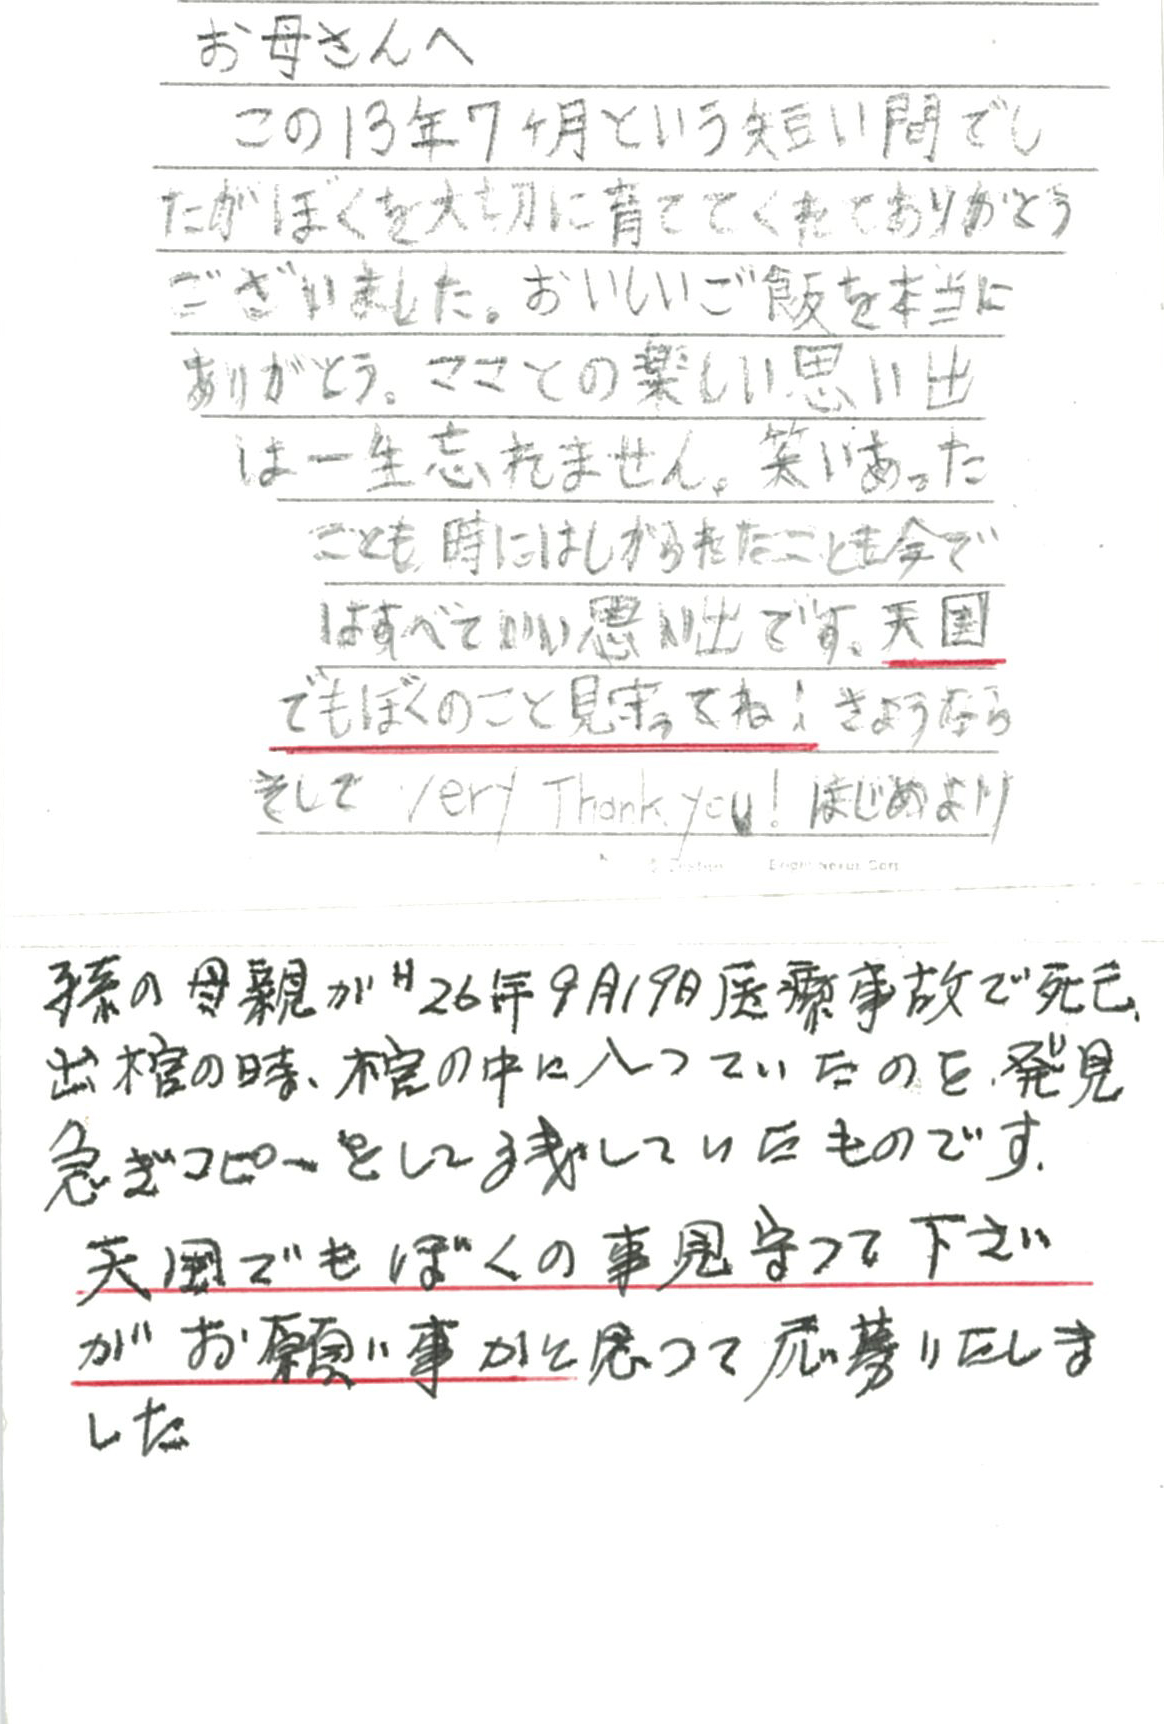 お母さんへ
この13年7ヶ月という短い間でし
たがぼくを大切に育ててくれてありがとう
ございました。おいしいご飯を本当に
ありがとう。ママとの楽しい思い出
は一生忘れません。笑いあった
ことも時にはしかられたことも今で
はすべていい思い出です。天国
でもぼくのこと見守ってね！さようなら
そして Very Thank you! はじめより
孫の母親がH26年9月19日医療事故で死亡、
出棺の時、棺の中に入っていたのを、発見
急ぎコピーをして残していたものです。
天国でもぼくの事見守って下さい
がお願い事かと思って応募いたしま
した